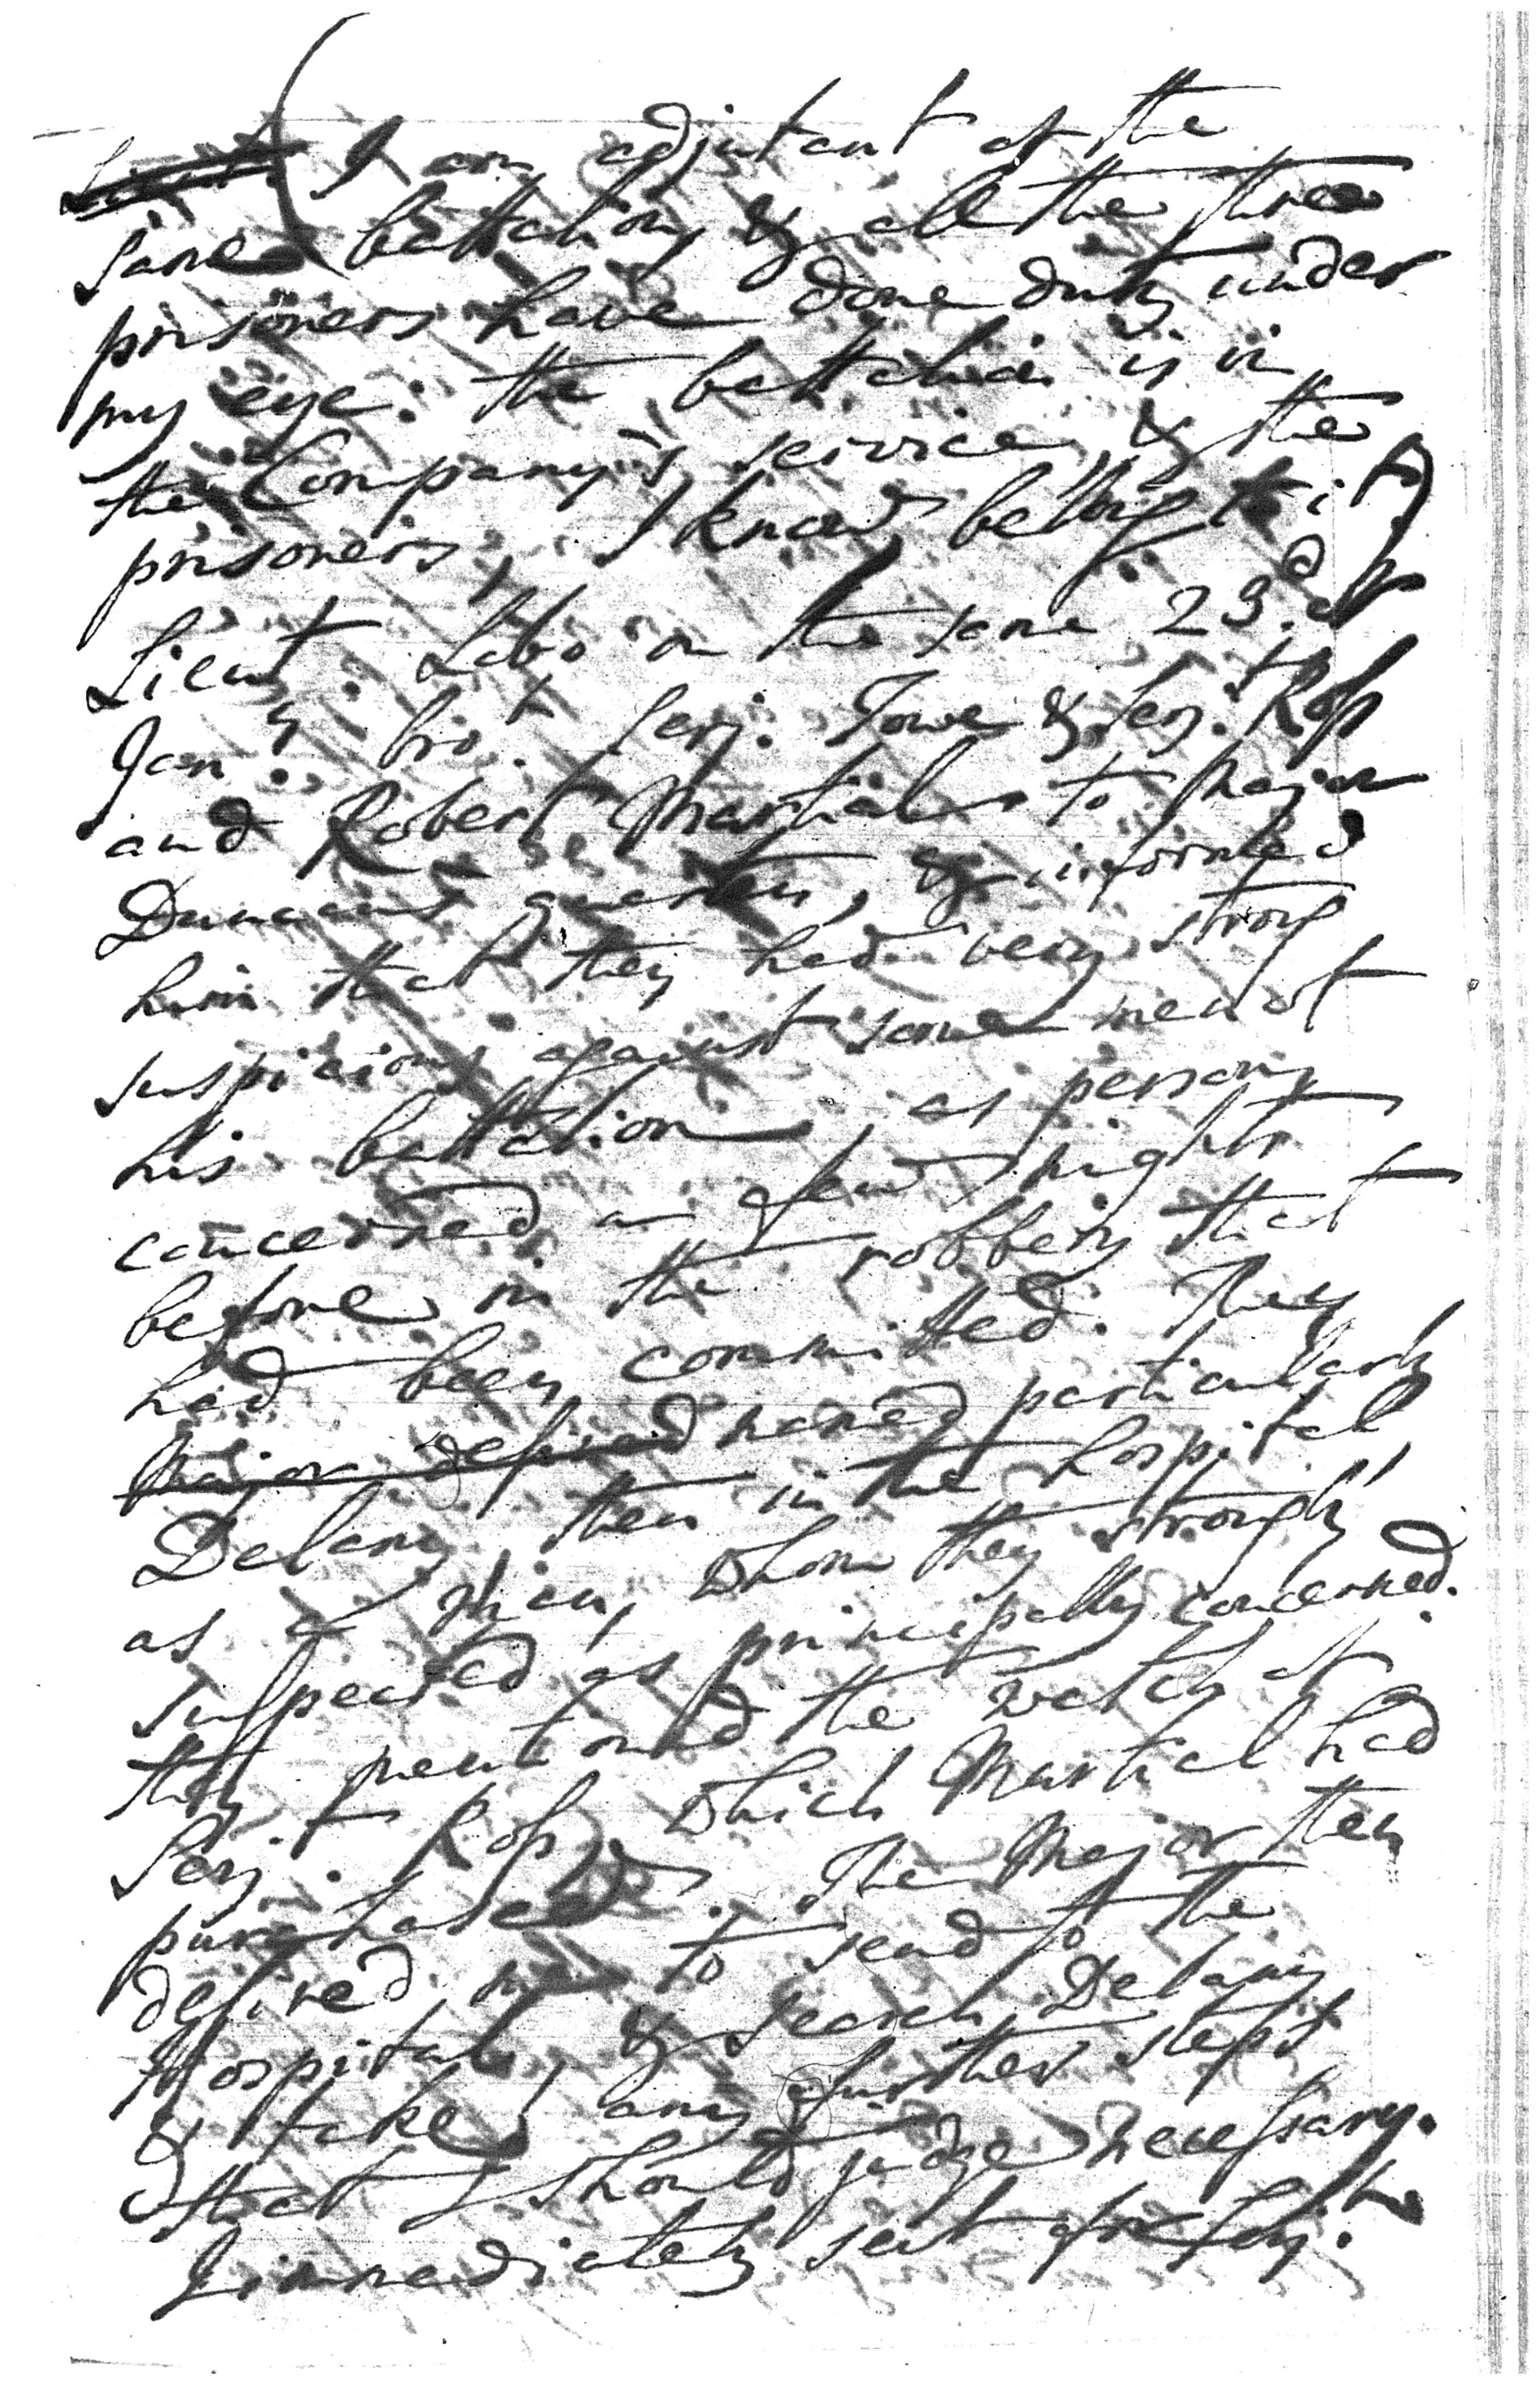 Lieut. ( I am adjutant of the
same battalion, & all the three
prisoners have done duty under
my eye. the battalion is in
the Company's service, & the
prisoners, I know, belong to it)
Lieut. Labo on the same 23.d of
Jan.y bro.t Serj. Towe & Serj.t Roſs
and Robert Martial to Major
Duncan's quarters, & informed
him that they had very strong
suspicions against some men of
his battalion, as persons
concerned a few nights
before in the robbery that
had been committed. They
Major desired named particularly
Delany, then in the hospital,
as a man, whom they strongly
suſpected as principally concerned.
they mentioned the watch of
Serj.t Roſs, which Martial had
purchased. The Major then
deſired me to send to the
Hospital, & search Delany
& take any further steps
that I should judge neceſsary.
I immediately sent for Serj.t